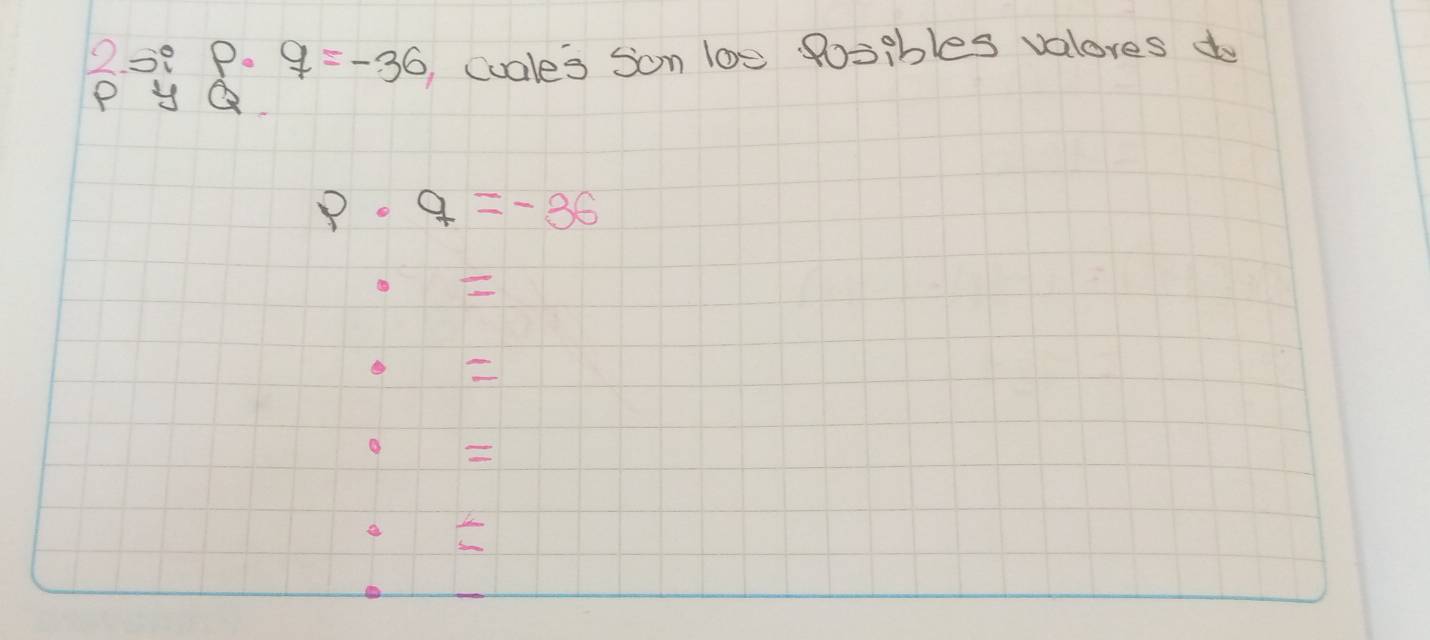 2. Si P. q = -36, cuales son los posibles valores de
P y Q.
P . q = -36
. =
. =
. =
. =
. =